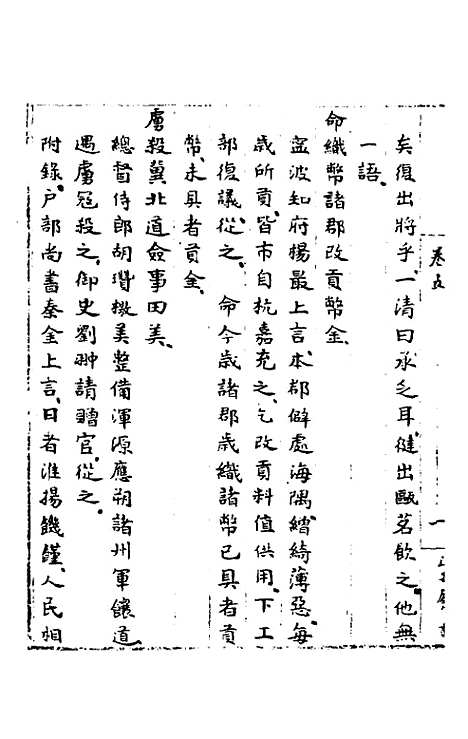 卷五
一
矣復出將乎一清曰承乏耳健出甌茗飲之他無
一語
命織幣諸郡改貢幣金
寧波知府楊最上言本郡僻處海隅繒綺薄惡每
歲所貢皆市自杭嘉充之乞改貢料值供用下工
部復議從之 命今歲諸郡歲織諸幣已具者貢
幣未具者貢金
虜殺冀北道僉事田美
總督侍郎胡瓚檄美整備渾源應朔諸州軍餉道
遇虜寇殺之御史劉翀請贈官從之
附錄戶部尚書秦金上言日者淮揚饑饉人民相